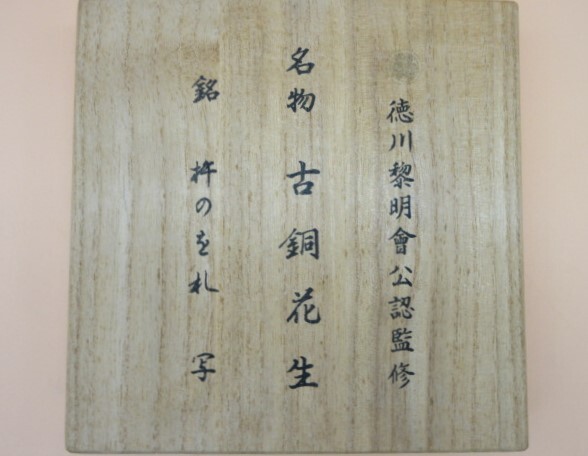 徳川黎明會公認監修
名物 古銅花生
銘 杵のを札 写